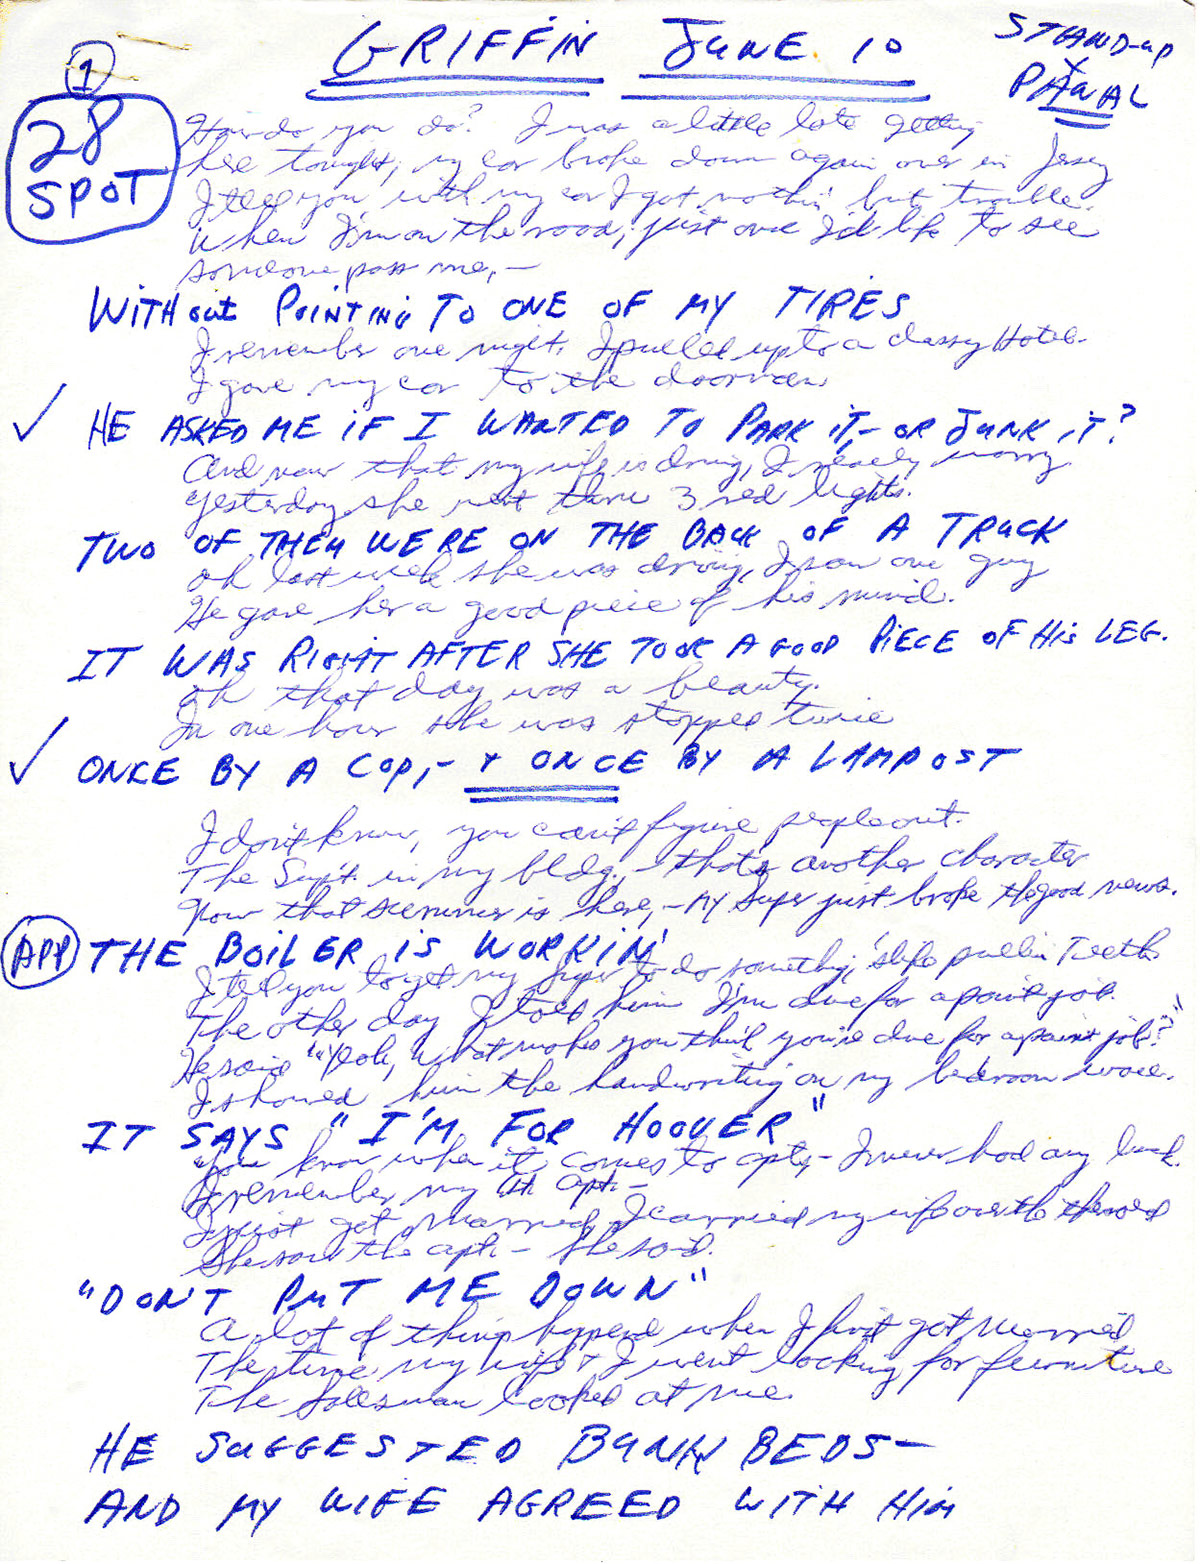 GRIFFIN JUNE 10
STAND-up
X
PANAL
1
28
SPOT
How do you do? I was a little late getting
here tonight, my car broke down again over in Jersey
I tell you with my car I got nothin' but trouble.
When I'm on the road, just once I'd like to see
someone pass me, —
WITHOUT POINTING TO ONE OF MY TIRES
I remember one night, I pulled up to a classy Hotel.
I gave my car to the doorman
✓ HE ASKED ME IF I WANTED TO PARK IT, — OR JUNK IT?
And now that my wife is driving, I really worry
Yesterday she went thru 3 red lights.
TWO OF THEM WERE ON THE BACK OF A TRUCK
Oh last week she was driving, I saw one guy
He gave her a good piece of his mind.
IT WAS RIGHT AFTER SHE TOOK A GOOD PIECE OF HIS LEG.
Oh that day was a beauty.
In one hour she was stopped twice
✓ ONCE BY A COP, — + ONCE BY A LAMPOST
I don't know, you can't figure people out.
The Sup't. in my bldg. — that's another character
Now that summer is here, — my super just broke the good news.
APP THE BOILER IS WORKIN'
I tell you to get my super to do something, 's like pullin Teeth
The other day I told him I'm due for a paint job.
He said "Yeah, what makes you think you're due for a paint job?"
I showed him the handwriting on my bedroom wall.
IT SAYS "I'M FOR HOOVER"
You know when it comes to apts, — I never had any luck.
I remember my 1st apt. —
I just got married, I carried my wife over the threshold
She saw the apt. — She said.
"DON'T PUT ME DOWN"
A lot of things happened when I first got married
The time my wife + I went looking for furniture
The salesman looked at me.
HE SUGGESTED BUNK BEDS —
AND MY WIFE AGREED WITH HIM